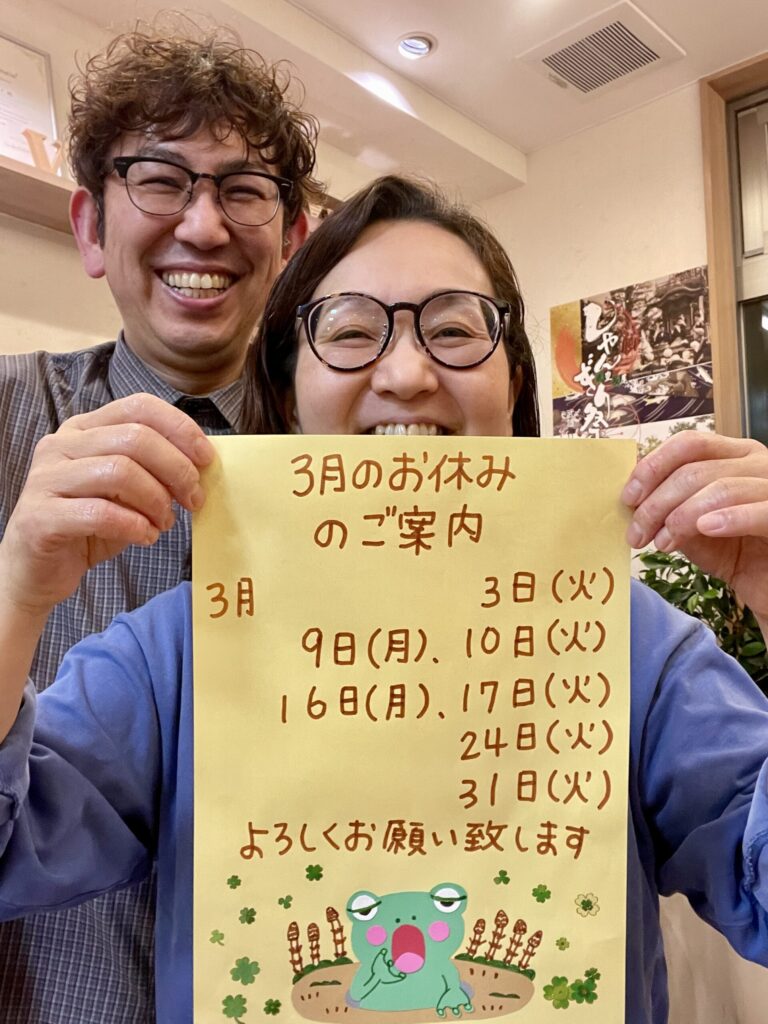 3月のお休み
のご案内
3月 3日(火)
9日(月)、10日(火)
16日(月)、17日(火)
24日(火)
31日(火)
よろしくお願い致します